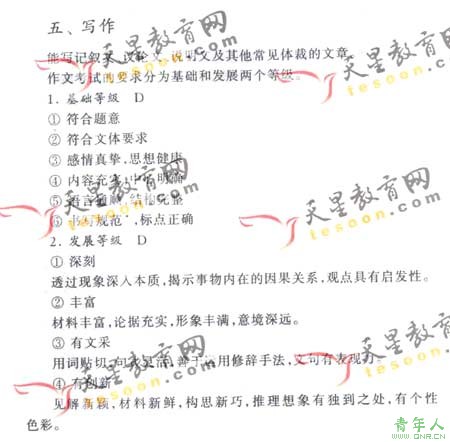 五、写作
能写记叙文、议论文、说明文及其他常见体裁的文章。
作文考试的要求分为基础和发展两个等级。
1. 基础等级 D
① 符合题意
② 符合文体要求
③ 感情真挚,思想健康
④ 内容充实,中心明确
⑤ 语言通顺,结构完整
⑥ 书写规范,标点正确
2. 发展等级 D
① 深刻
透过现象深入本质,揭示事物内在的因果关系,观点具有启发性。
② 丰富
材料丰富,论据充实,形象丰满,意境深远。
③ 有文采
用词贴切,句式灵活,善于运用修辞手法,文句有表现力。
④ 有创新
见解新颖,材料新鲜,构思新巧,推理想象有独到之处,有个性
色彩。
天星教育网
tesoon.com
天星教育网
tesoon.com
天星教育网
tesoon.com
天星教育网
tesoon.com
天星教育网
tesoon.com
青年人
www.QNR.CN